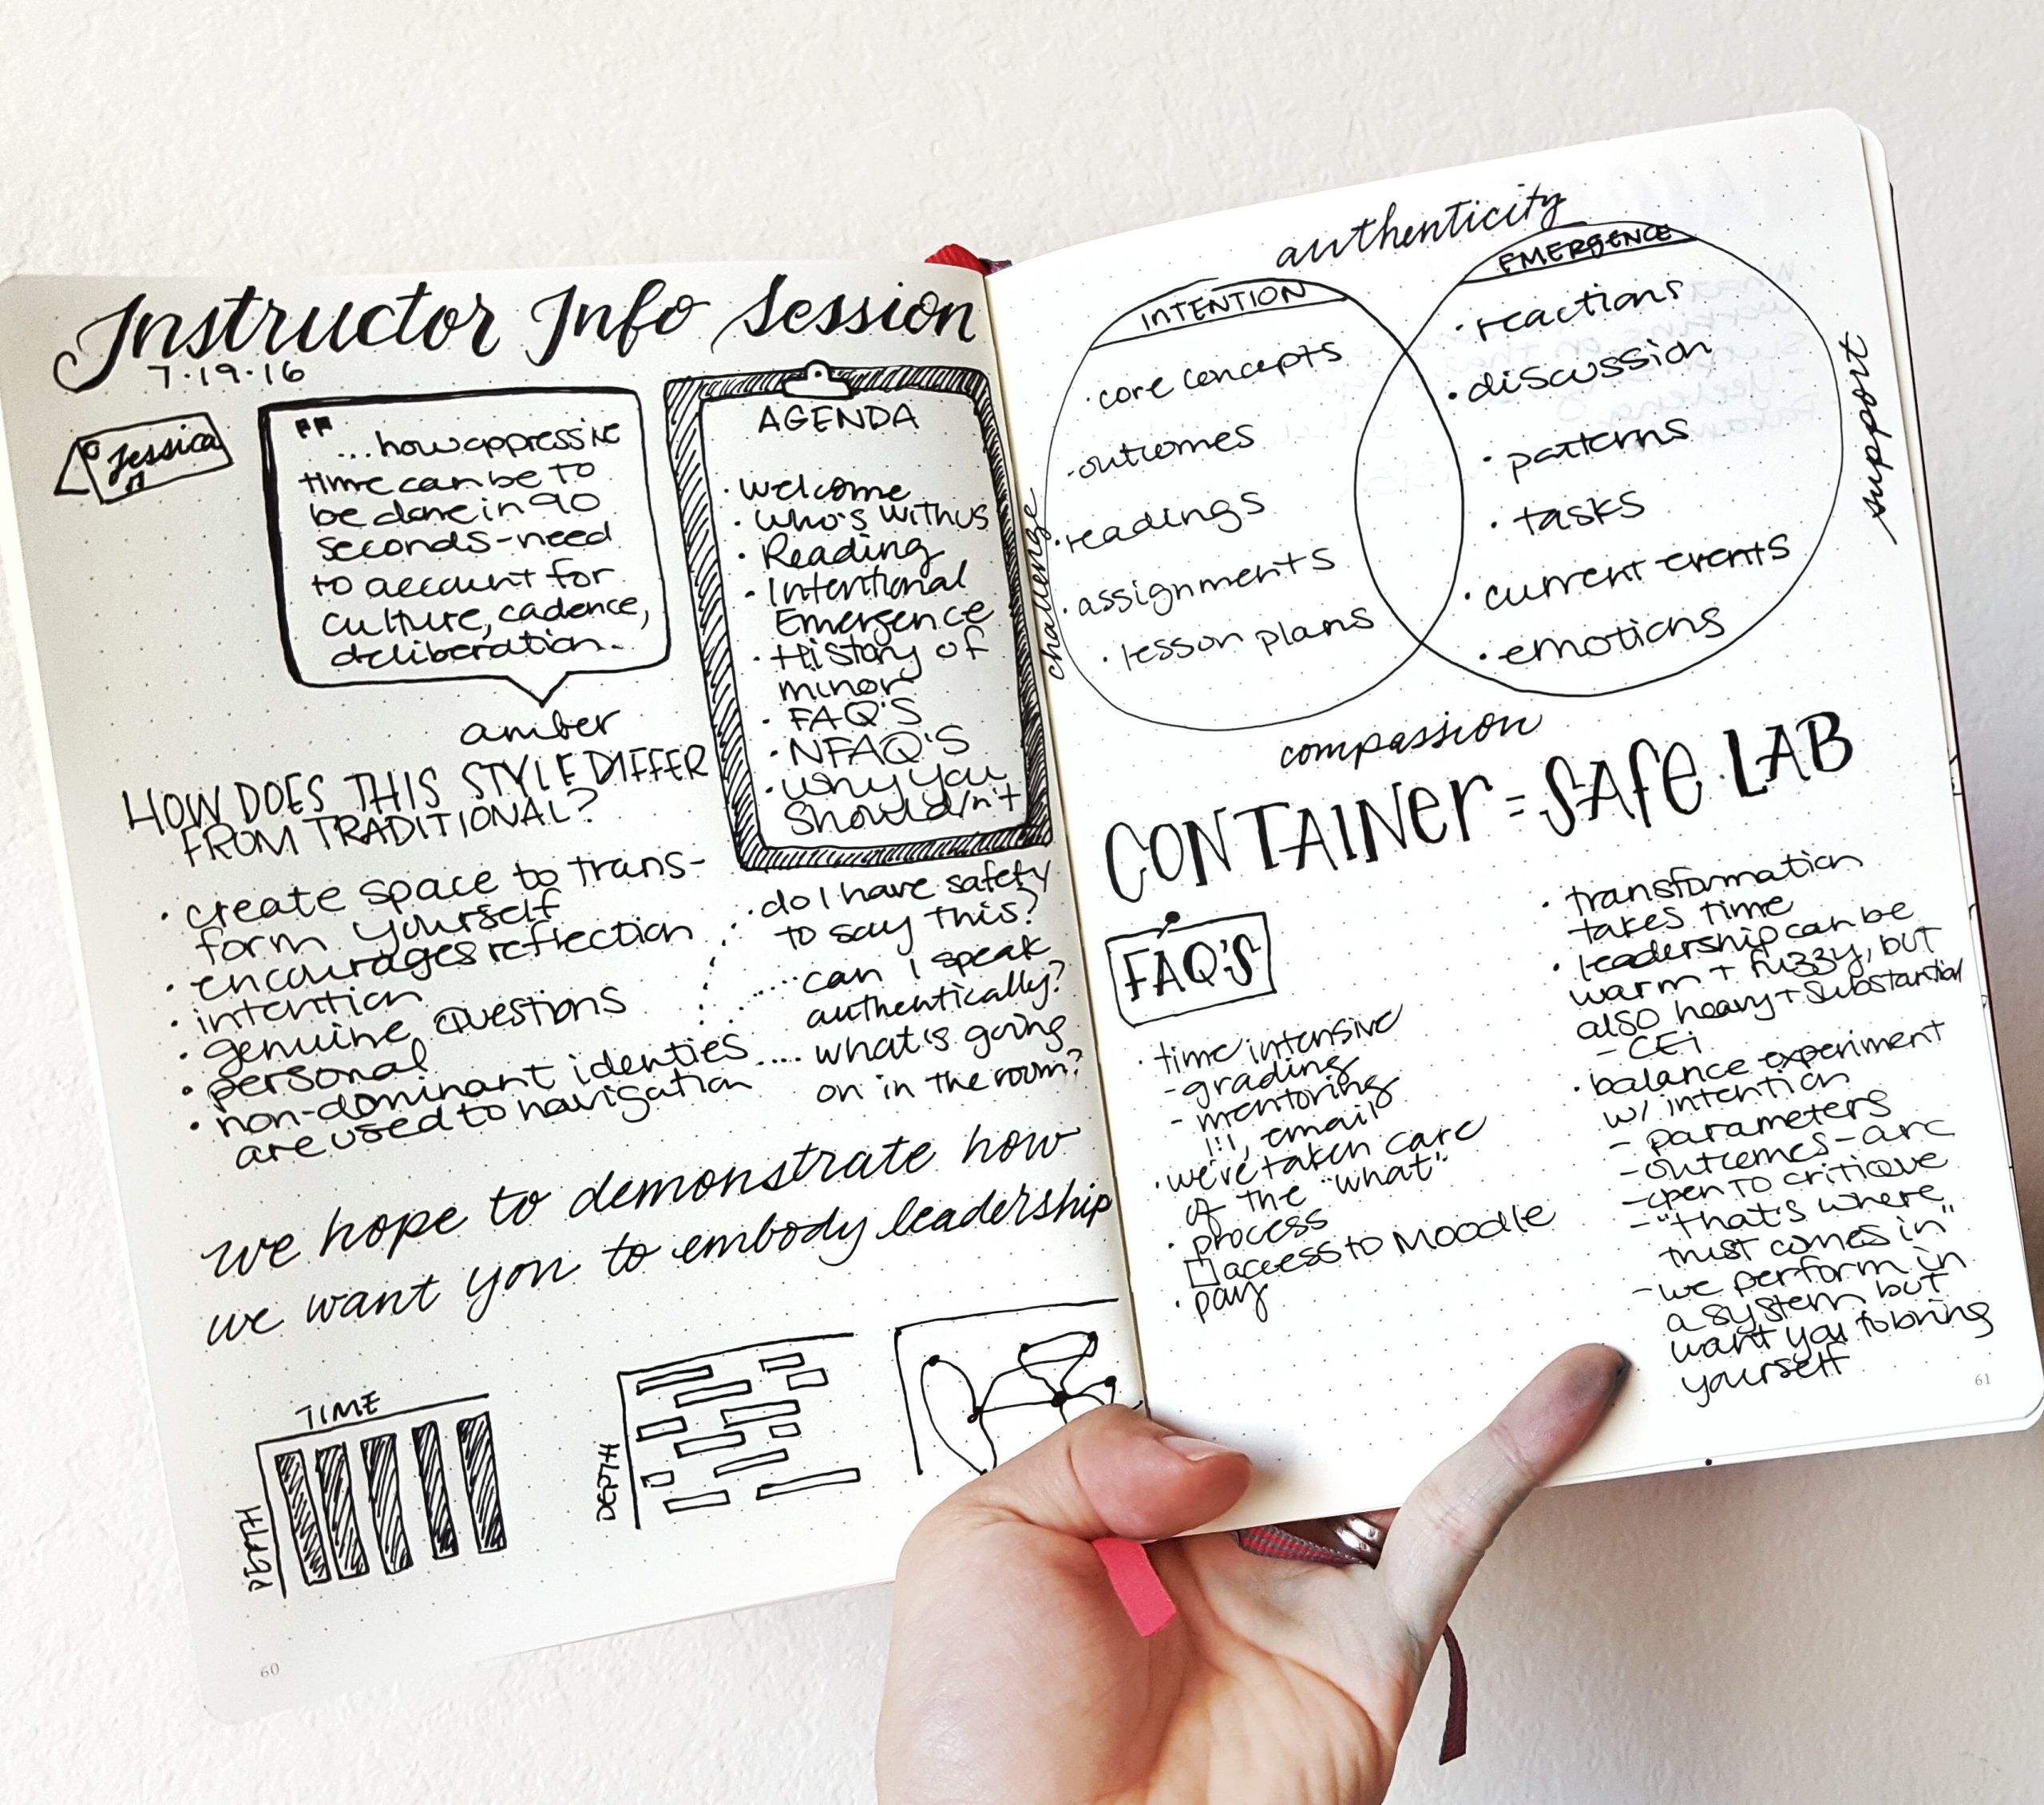 Instructor Info Session
7.19.16
Jessica
"...how oppressive
time can be to
be done in 90
seconds-need
to account for
culture, cadence,
deliberation..
amber
AGENDA
· Welcome
· Who's with us
· Reading
· Intentional
Emergence
· History of
minor
· FAQ'S
· NFAQ'S
· Why you
Should/n't
HOW DOES THIS STYLE DIFFER
FROM TRADITIONAL?
· create space to trans-
form yourself
· encourages reflection
· intention
· genuine questions
· personal
· non-dominant identies
are used to navigation
· do I have safety
to say this?
.... can I speak
authentically?
.... what's going
on in the room?
we hope to demonstrate how
we want you to embody leadership
TIME
DEPTH
DEPTH
60
authenticity
INTENTION
· core concepts
· outcomes
· readings
· assignments
· lesson plans
challenge
EMERGENCE
· reactions
· discussion
· patterns
· tasks
· current events
· emotions
support
compassion
CONTAINER = SAFE LAB
FAQ'S
· time intensive
- grading
- mentoring
1:1, email
· we've taken care
of the "what"
· process
access to Moodle
· pay
· transformation
takes time
· leadership can be
warm + fuzzy, but
also heavy + substantial
- CEi
· balance experiment
w/ intention
- parameters
- outcomes - arc
- open to critique
- "that's where
trust comes in"
- we perform in
a system but
want you to bring
yourself
61